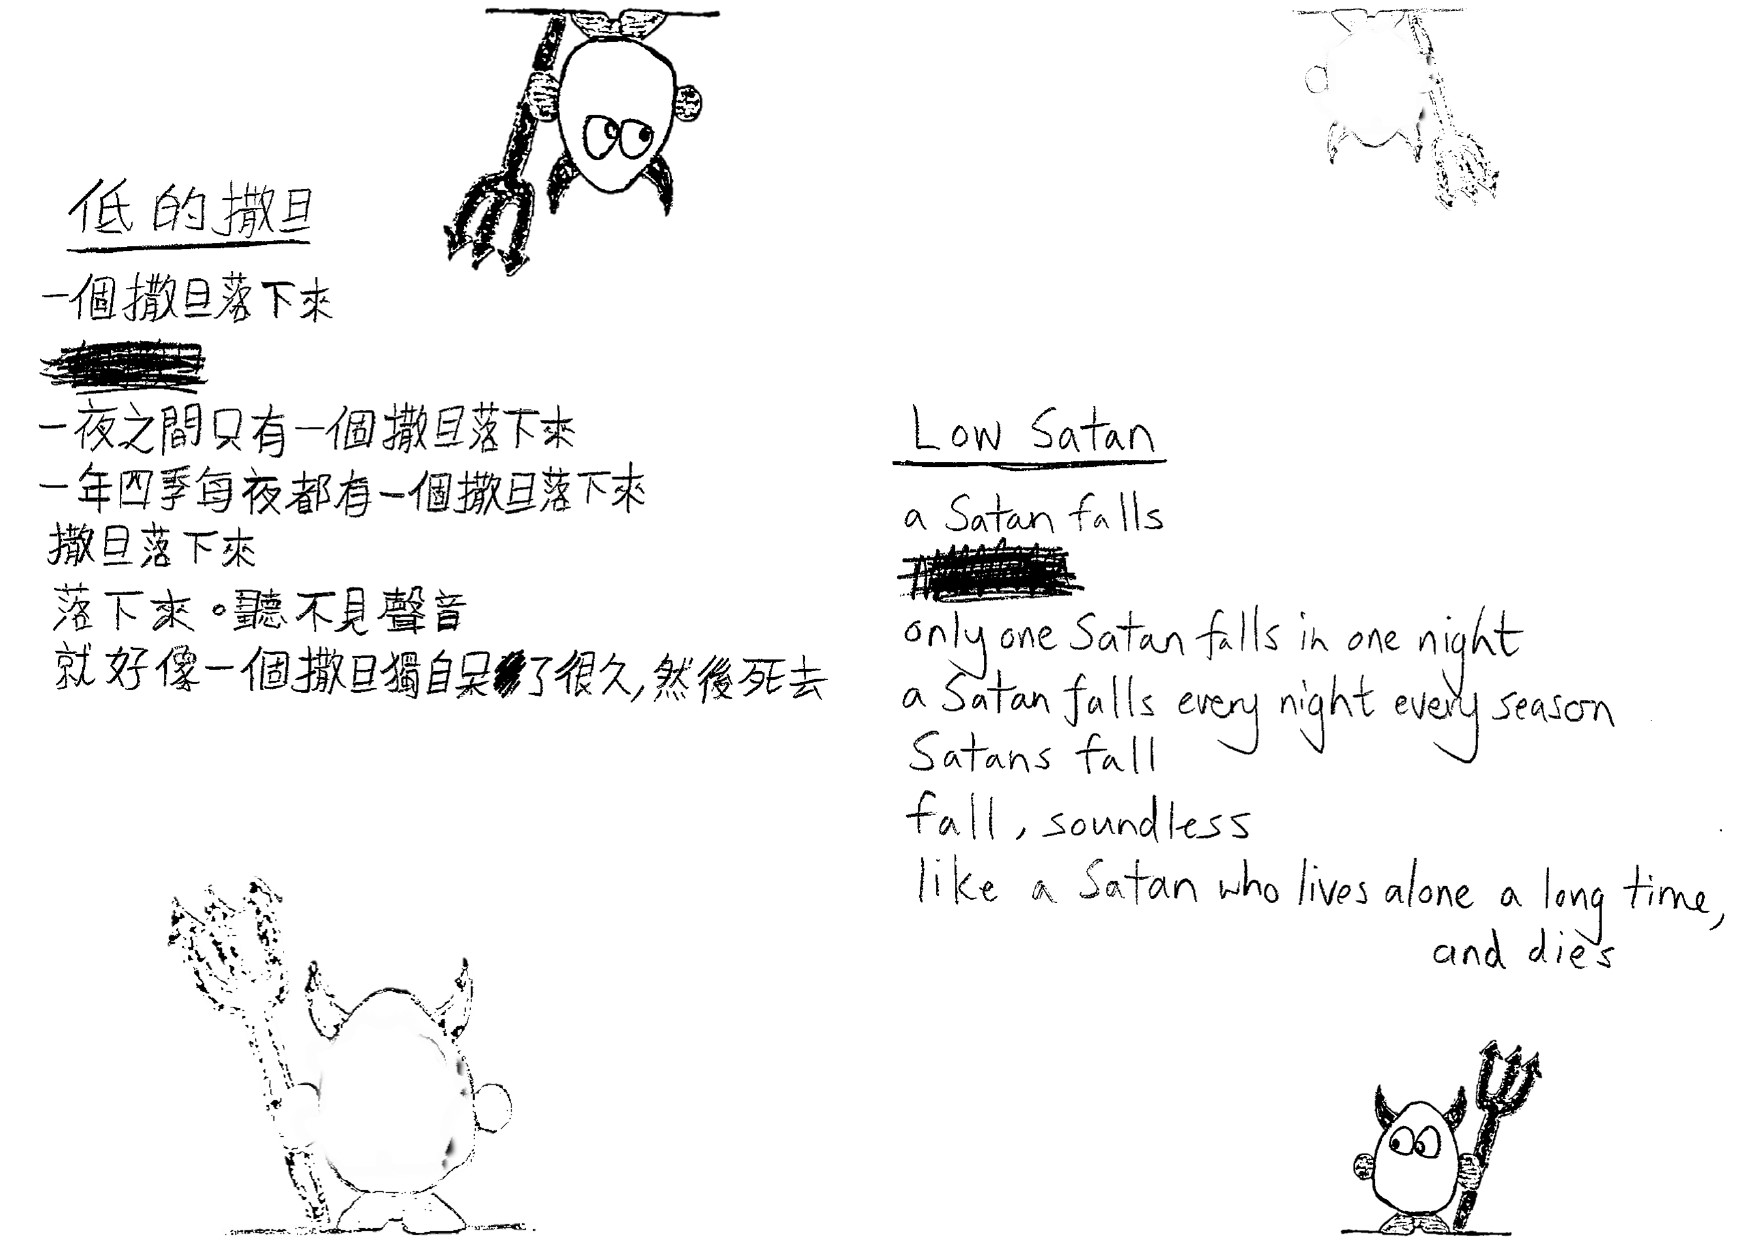 低的撒旦
一個撒旦落下來
一夜之間只有一個撒旦落下來
一年四季每夜都有一個撒旦落下來
撒旦落下來
落下來。聽不見聲音
就好像一個撒旦獨自呆了很久,然後死去
Low Satan
a Satan falls
only one Satan falls in one night
a Satan falls every night every season
Satans fall
fall, soundless
like a Satan who lives alone a long time,
and dies